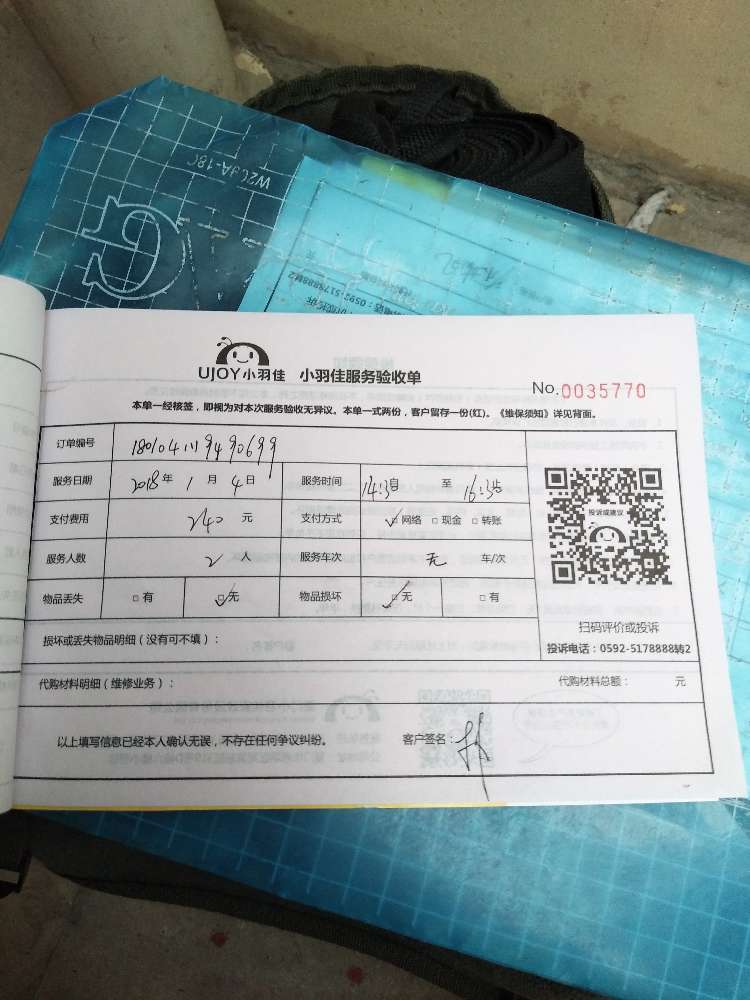 W20JA-180
UJOY小羽佳 小羽佳服务验收单
No.0035770
本单一经核签，即视为对本次服务验收无异议。本单一式两份，客户留存一份(红)。《维保须知》详见背面。
订单编号
服务日期 2018年 1月 4日 服务时间 14:30 至 16:30
支付费用 240 元 支付方式 ☑网络 □现金 □转账
服务人数 2 人 服务车次 无 车/次
物品丢失 □有 ☑无 物品损坏 ☑无 □有
投诉或建议
扫码评价或投诉
投诉电话：0592-5178888转2
损坏或丢失物品明细（没有可不填）：
代购材料明细（维修业务）： 代购材料总额： 元
以上填写信息已经本人确认无误，不存在任何争议纠纷。 客户签名：林